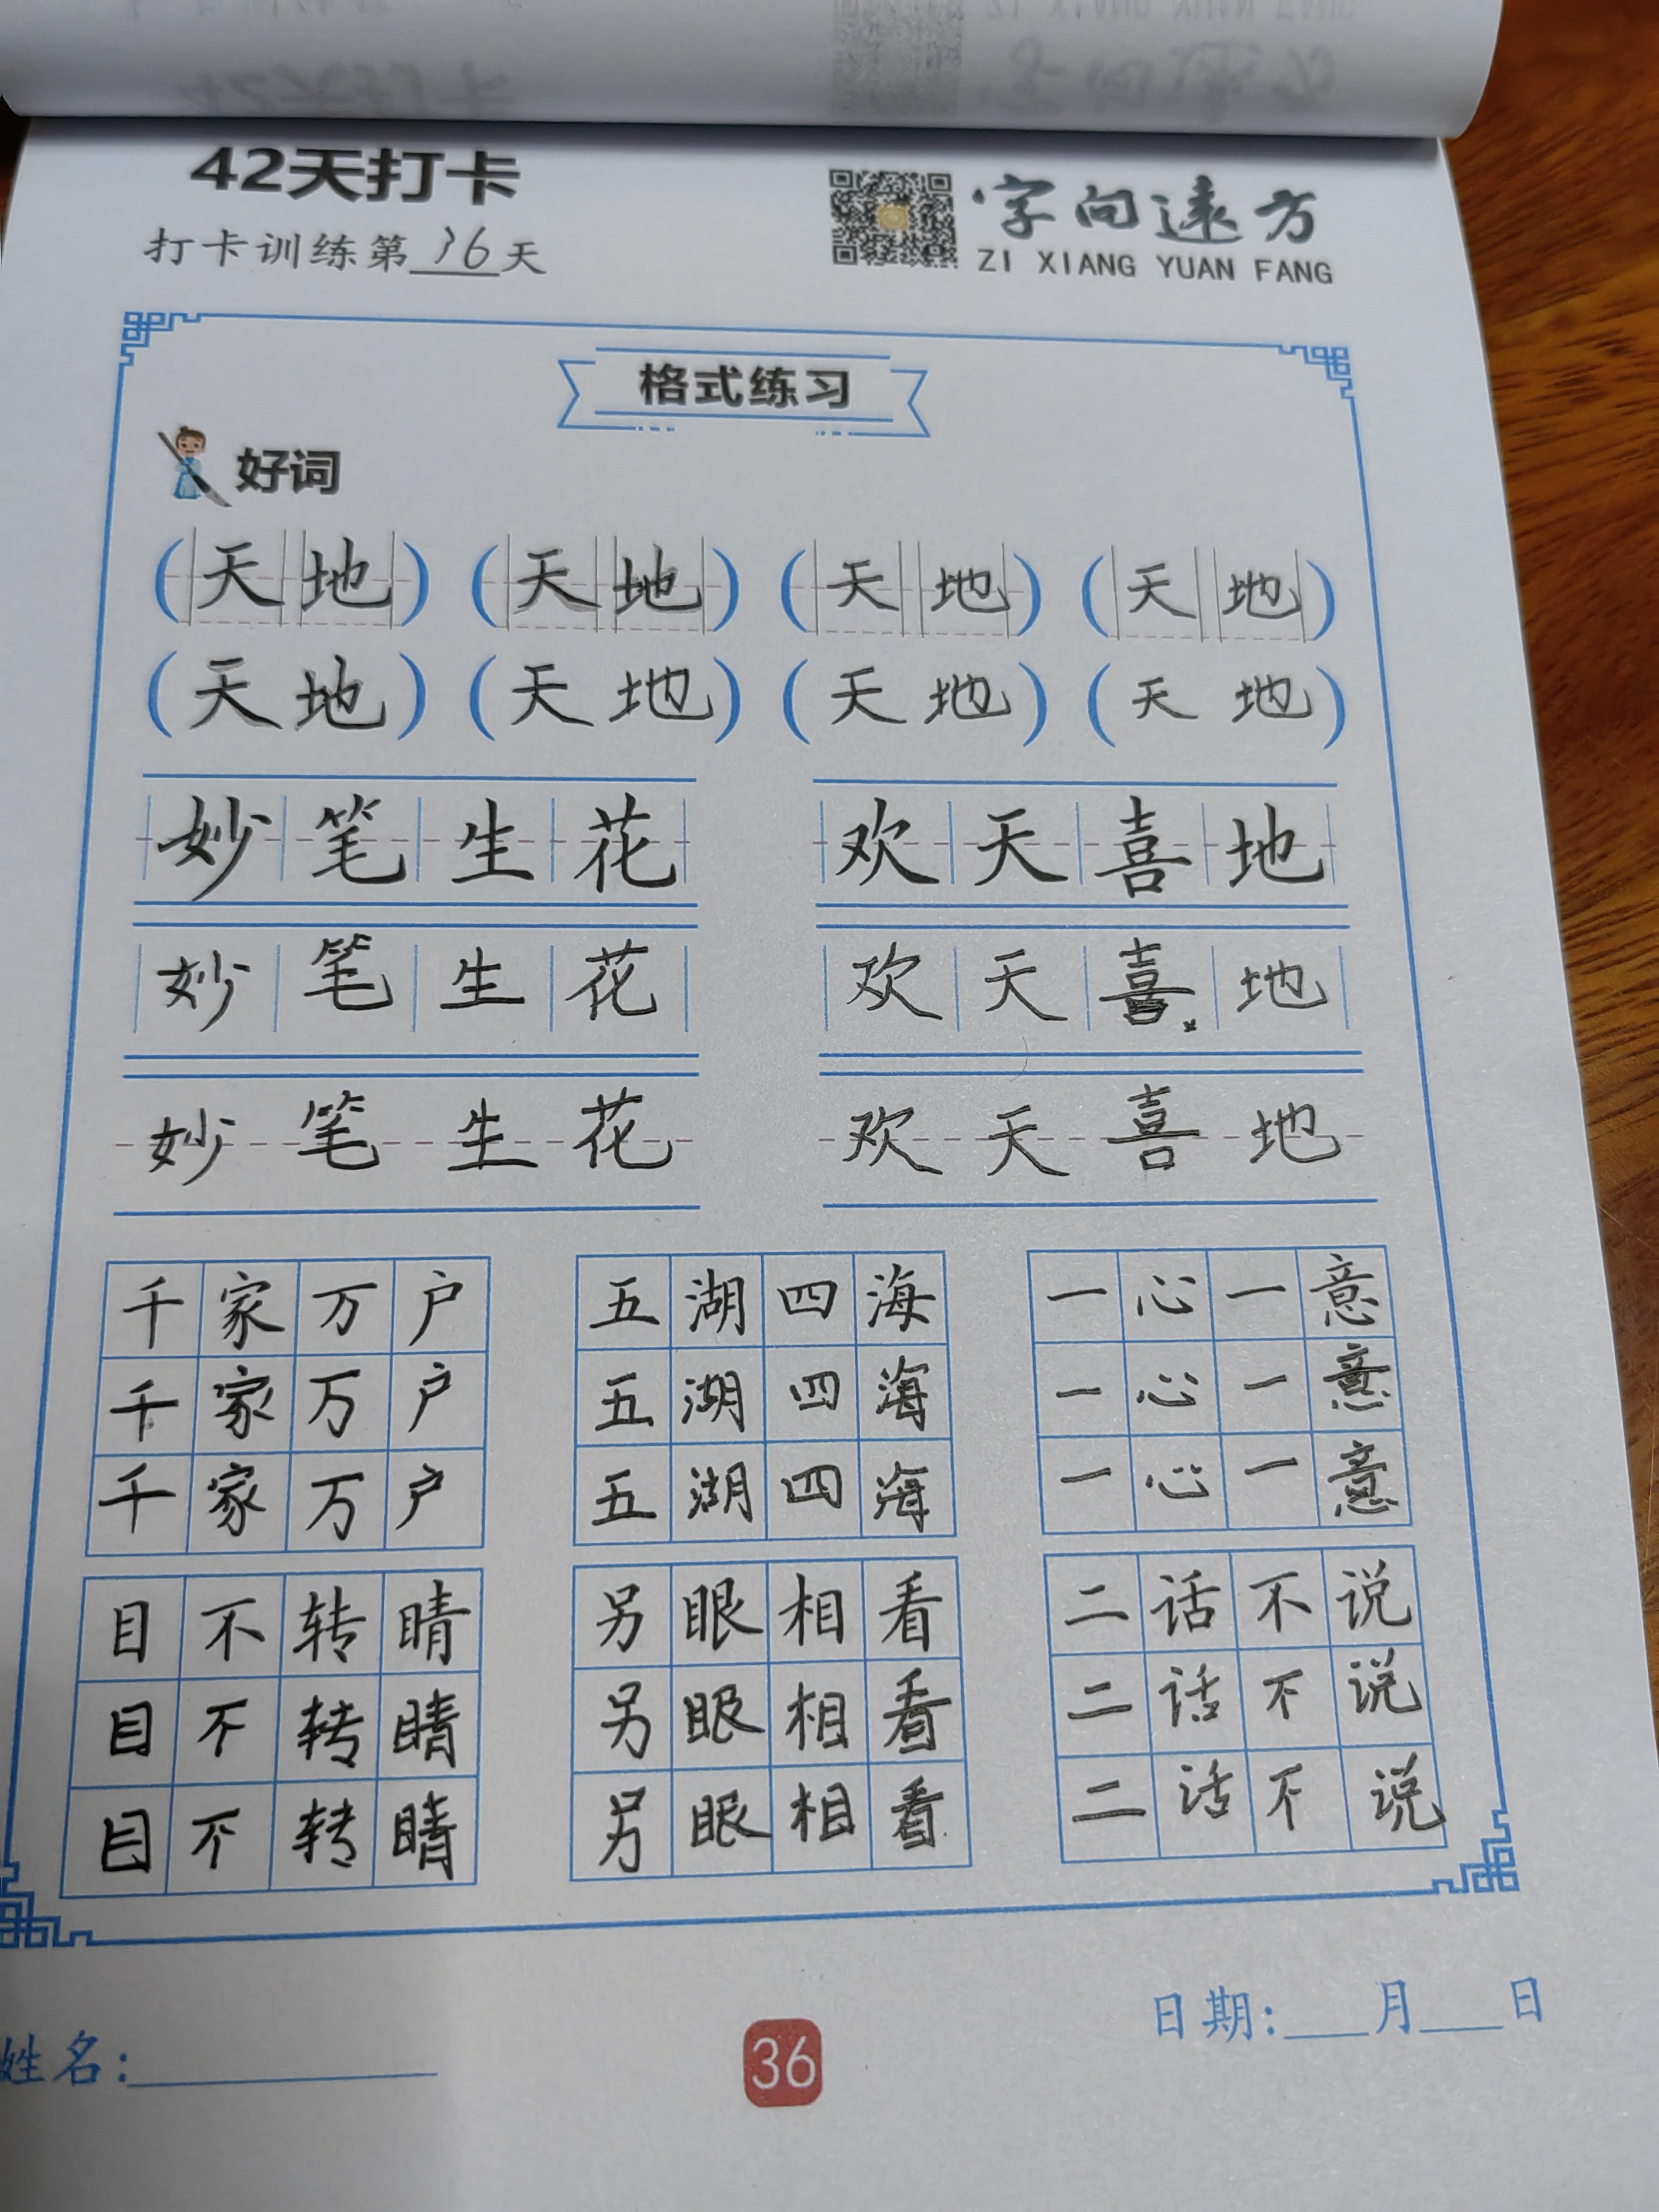 42天打卡
字向远方
打卡训练第36天
ZI XIANG YUAN FANG
格式练习
好词
(天地) (天地) (天地) (天地)
(天地) (天地) (天地) (天地)
妙笔生花 欢天喜地
妙笔生花 欢天喜地
妙笔生花 欢天喜地
千家万户 五湖四海 一心一意
千家万户 五湖四海 一心一意
千家万户 五湖四海 一心一意
目不转睛 另眼相看 二话不说
目不转睛 另眼相看 二话不说
目不转睛 另眼相看 二话不说
日期:___月___日
姓名:
36